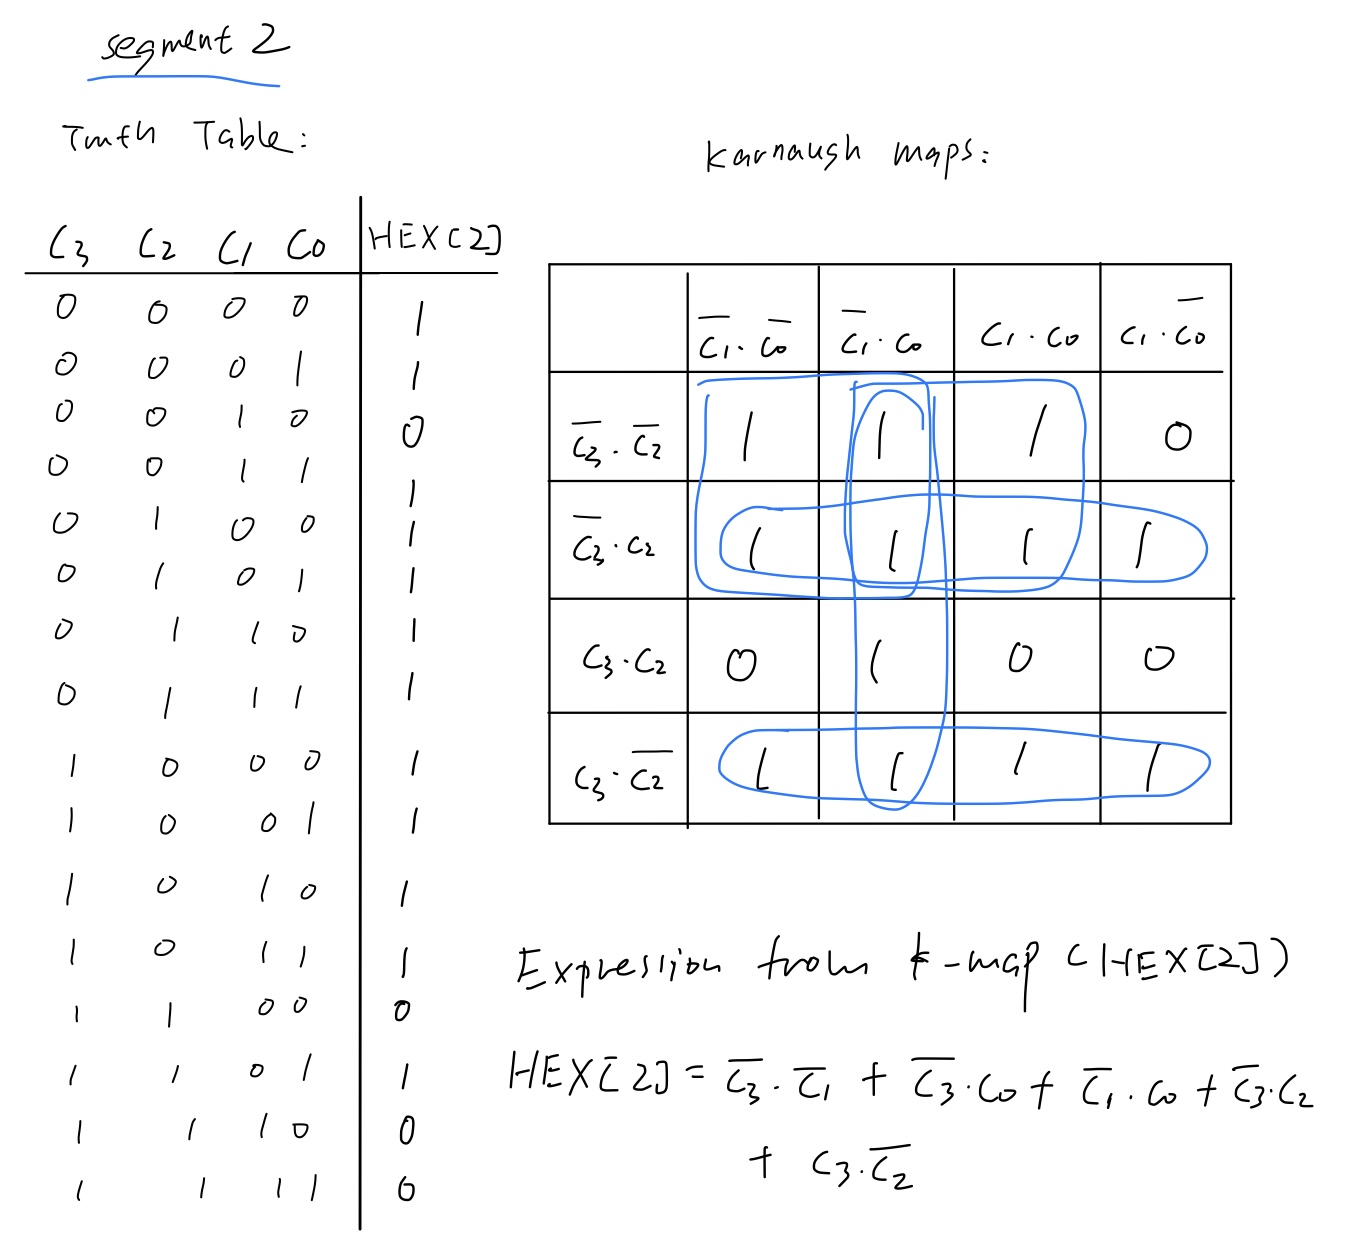 segment 2
Truth Table:
C3 C2 C1 C0 HEX[2]
0 0 0 0 1
0 0 0 1 1
0 0 1 0 0
0 0 1 1 1
0 1 0 0 1
0 1 0 1 1
0 1 1 0 1
0 1 1 1 1
1 0 0 0 1
1 0 0 1 1
1 0 1 0 1
1 0 1 1 1
1 1 0 0 0
1 1 0 1 1
1 1 1 0 0
1 1 1 1 0
Karnaugh maps:
C̅1·C̅0 C̅1·C0 C1·C0 C1·C̅0
C̅3·C̅2 1 1 1 0
C̅3·C2 1 1 1 1
C3·C2 0 1 0 0
C3·C̅2 1 1 1 1
Expression from k-map (HEX[2])
HEX[2] = C̅3·C̅1 + C̅3·C0 + C̅1·C0 + C̅3·C2
+ C3·C̅2